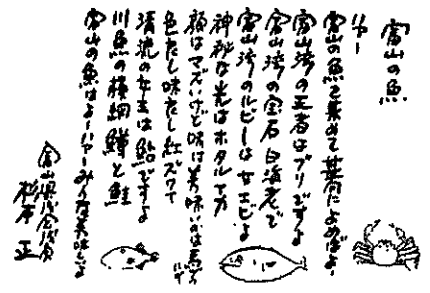 富山の魚
ハァー
富山の魚を集めて華向によめばよー
富山湾の王者はブリですよ
富山湾の宝石白海老で
富山湾のルビーは甘エビよ
神秘な光はホタルイカ
顔はマズいけど味は美味い
色だし味だし紅ズワイ
清流の女王は鮎ですよ
川魚の横綱鱒と鮭
富山の魚はよーハァーみんな美味しいよ
富山県
杉原 正